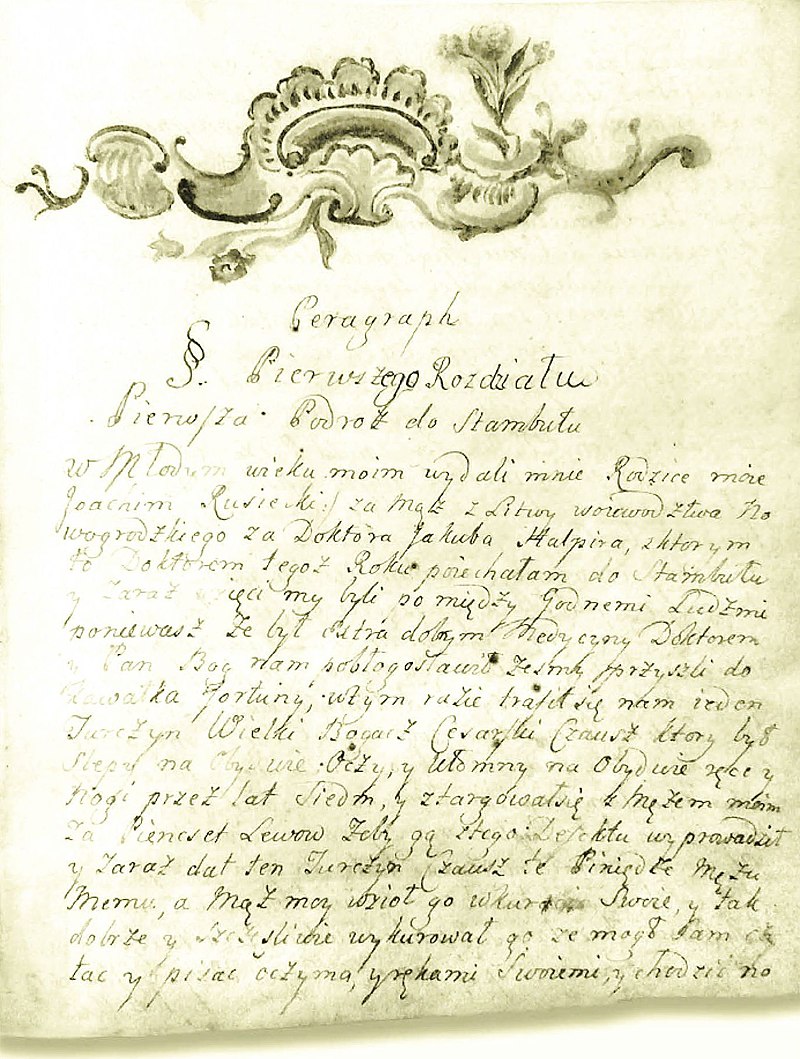 Peragraph
§. Pierwszego Rozdziału
Pierwsza Podroż do Stambułu
W Młodym wieku moim wydali mnie Rodzice moie
Joachim Rusiecki:/ za Mąż z Litwy woiewodztwa No
wogrodzkiego za Doktora Jakuba Halpira, zktorym
to Doktorem tegoż Roku poiechałam do Stambułu
y Zaraż my byli pomiędzy Godnemi Ludzmi
poniewasz że był extra dobrym Medycyny Doktorem
y Pan Bog nam pobłogosławił żesmy przyszli do
Kawałka Fortuny; wtym razie trafił się nam ieden
Turczyn Wielki Bogacz Cesarski Czausz ktory był
Slepy na Obydwie Oczy, y Ułomny na Obydwie ręce y
Nogi przez lat Siedm, y ztargowałsię z Mężem moim
Za Piencset Lewow Żeby gą ztego Defektu wyprowadził
y Zaraż dał ten Turczyn Czausz te Piniędze Mężu
Memu, a Mąż moy wzioł go Swoie, y tak
dobrze y Szczęśliwie wykurował go ze mogł Sam czy
tac y pisac oczyma, y rękami Swoiemi, y chodzić no